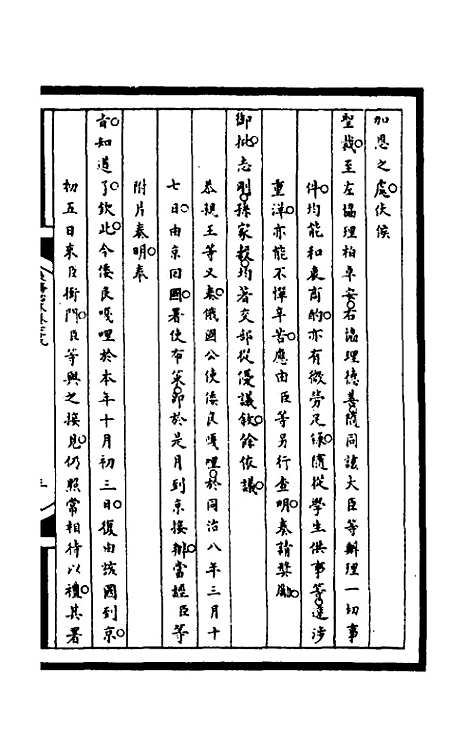 加恩之處伏候
聖裁至左協理柏卓安右協理德善隨同該大臣等辦理一切事
件均能和衷商酌亦有微勞足錄隨從學生供事等遠涉
重洋亦能不憚辛苦應由臣等另行查明奏請獎勵
御批志剛孫家穀均著交部從優議敘餘依議
恭親王等又奏俄國公使倭良嘎哩於同治八年三月十
七日由京回國署使布策即於是月到京接辦當經臣等
附片奏明奉
旨知道了欽此今倭良嘎哩於本年十月初三日復由該國到京
初五日來臣衙門臣等與之接見仍照常相待以禮其署